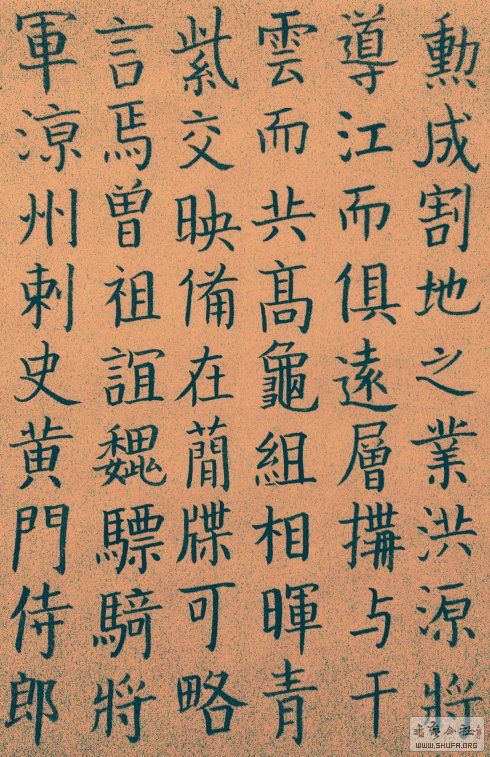 勳成割地之業洪源將
導江而俱遠層搆与干
雲而共髙龜組相暉青
紫交映備在蕳牒可略
言焉曽祖誼魏驃騎將
軍涼州刺史黄門侍郎
WWW.SHUFA.ORG